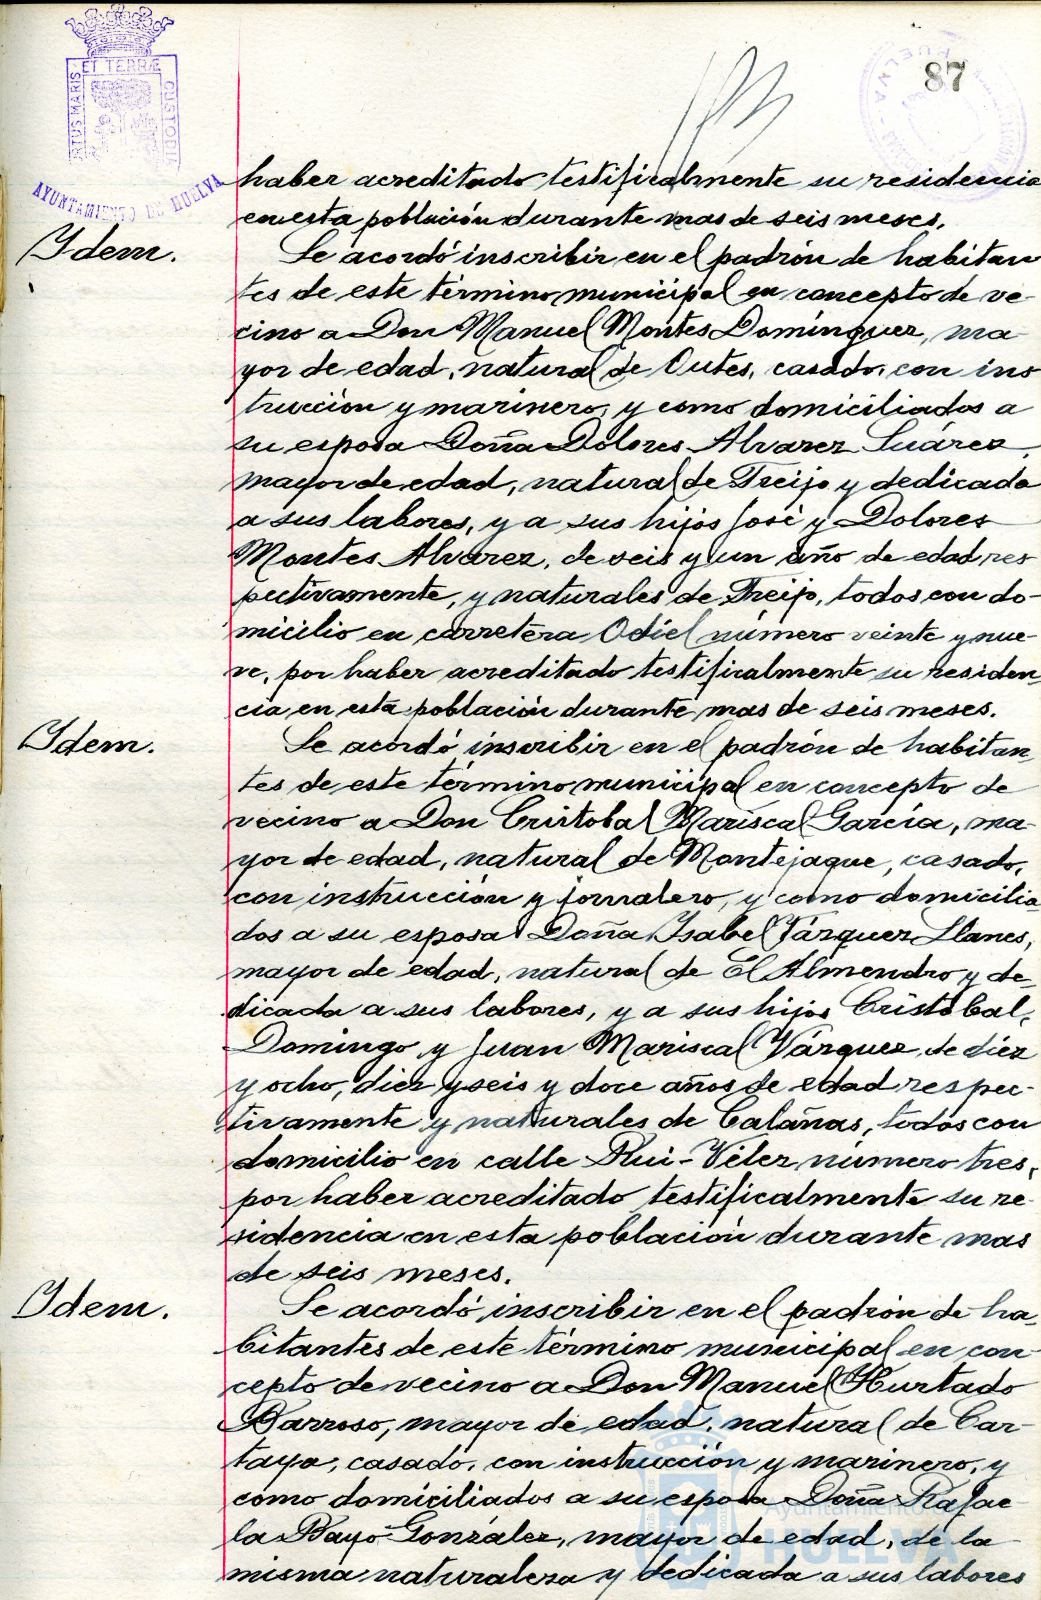 ET TERRÆ
PORTUS MARIS
CUSTODIA
AYUNTAMIENTO DE HUELVA
87
haber acreditado testificalmente su residencia
en esta población durante mas de seis meses.
Idem.
Se acordó inscribir en el padrón de habitan
tes de este término municipal en concepto de ve-
cino a Don Manuel Montes Domínguez, ma-
yor de edad, natural de Outes, casado, con ins
trucción y marinero, y como domiciliados a
su esposa Doña Dolores Alvarez Suárez,
mayor de edad, natural de Freijo y dedicada
a sus labores, y a sus hijos José y Dolores
Montes Alvarez, de seis y un año de edad res
pectivamente, y naturales de Freijo, todos con do-
micilio en carretera Odiel número veinte y nue-
ve, por haber acreditado testificalmente su residen-
cia en esta población durante mas de seis meses.
Idem.
Se acordó inscribir en el padrón de habitan
tes de este término municipal en concepto de
vecino a Don Cristobal Mariscal García, ma-
yor de edad, natural de Montejaque, casado,
con instrucción y jornalero, y como domicilia-
dos a su esposa Doña Isabel Vázquez Llanes,
mayor de edad, natural de El Almendro y de-
dicada a sus labores, y a sus hijos Cristóbal,
Domingo y Juan Mariscal Vázquez, de diez
y ocho, diez y seis y doce años de edad respec-
tivamente y naturales de Calañas, todos con
domicilio en calle Rui-Vélez número tres,
por haber acreditado testificalmente su re-
sidencia en esta población durante mas
de seis meses.
Idem.
Se acordó inscribir en el padrón de ha-
bitantes de este término municipal en con-
cepto de vecino a Don Manuel Hurtado
Barroso, mayor de edad, natural de Car-
taya, casado, con instrucción y marinero, y
como domiciliados a su esposa Doña Rafae-
la Bayo González, mayor de edad, de la
misma naturaleza y dedicada a sus labores
Ayuntamiento de
HUELVA